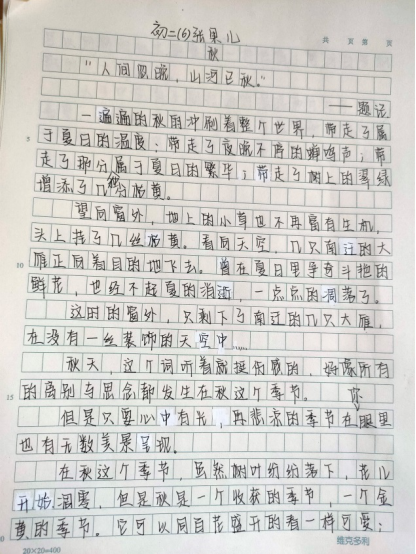 初二(6)张果儿
共 页 第 页
秋
"人间忽晚，山河已秋。"
——题记
一遍遍的秋雨冲刷着整个世界，带走了属
5
于夏日的温度；带走了夜晚不停的蝉鸣声；带
走了那分属于夏日的繁华；带走了树上的翠绿
增添了几份枯黄。
望向窗外，地上的小草也不再富有生机，
头上挂了几丝枯黄。看向天空，几只南迁的大
10
雁正向着目的地飞去。曾在夏日里争奇斗艳的
鲜花，也经不起夏的消逝，一点点的凋落了。
这时的窗外，只剩下了南迁的几只大雁，
在没有一丝装饰的天空中……
秋天，这个词听着就挺伤感的，好像所有
15
的离别与思念都发生在秋这个季节。
但是只要心中有光，再悲凉的季节在你眼里
也有无数美景呈现。
在秋这个季节，虽然树叶纷纷落下，花儿
开始凋零，但是秋是一个收获的季节，一个金
黄的季节。它可以同百花盛开的春一样可爱；
20×20=400
维克多利